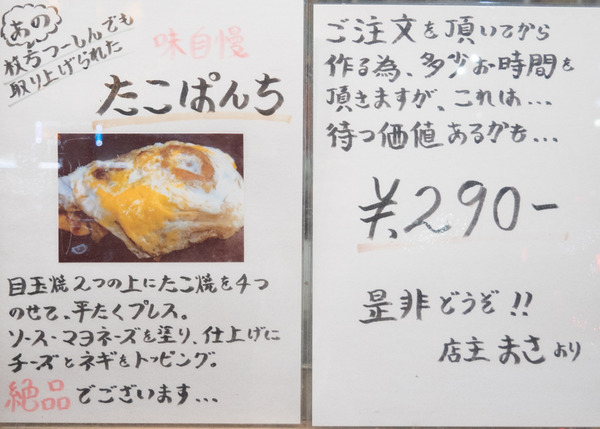 あの
枚方つーしんでも
取り上げられた
味自慢
たこぱんち
目玉焼2つの上にたこ焼を4つ
のせて、平たくプレス。
ソース・マヨネーズを塗り、仕上げに
チーズとネギをトッピング。
絶品でございます...
ご注文を頂いてから
作る為、多少お時間を
頂きますが、これは...
待つ価値あるかも...
¥290-
是非どうぞ!!
店主 まさより